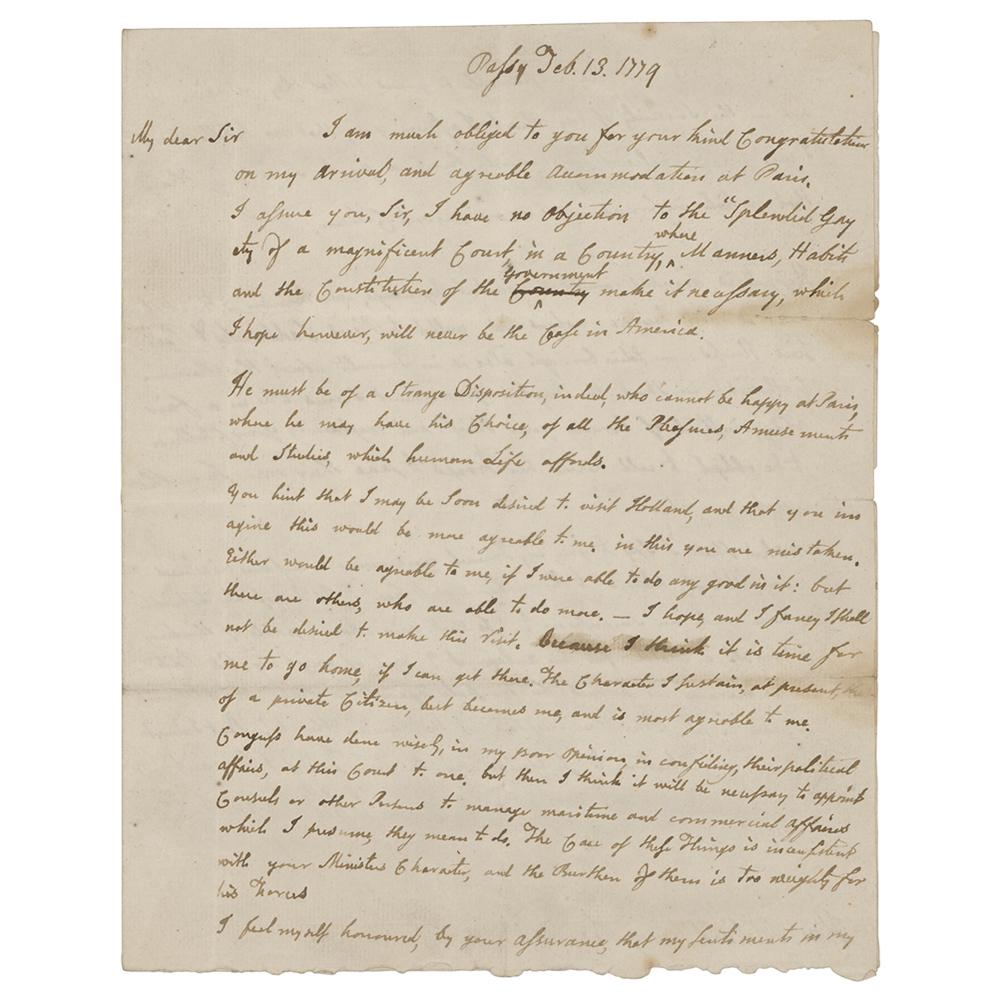 Passy Feb. 13. 1779
My dear Sir I am much obliged to you for your kind Congratulations
on my arrival, and agreable Accommodation at Paris.
I assure you, Sir, I have no Objection to the "Splendid Gay
ety of a magnificent Court, in a Country, where Manners, Habits
and the Constitution of the Country Government make it necessary, which
I hope however, will never be the Case in America.
He must be of a Strange Disposition, indeed, who cannot be happy at Paris,
where he may have his Choice, of all the Pleasures, Amusements
and Studies, which human Life affords.
You hint that I may be Soon desired to visit Holland, and that you im
agine this would be more agreable to me. in this you are mistaken.
Either would be agreable to me, if I were able to do any good in it: but
there are others, who are able to do more. — I hope, and I fancy I shall
not be desired to make this Visit. Because I think it is time for
me to go home, if I can get there. The Character I sustain, at present,
of a private Citizen, best becomes me, and is most agreable to me.
Congress have done wisely, in my poor opinion, in confiding, their political
affairs, at this Court to one. but then I think it will be necessary to appoint
Consuls or other Persons to manage maritime and commercial affairs
which I presume, they mean to do. The Care of these Things is inconsistent
with your Ministers Character, and the Burthen of them is too weighty for
his Forces
I feel myself honoured, by your assurance, that my sentiments in my